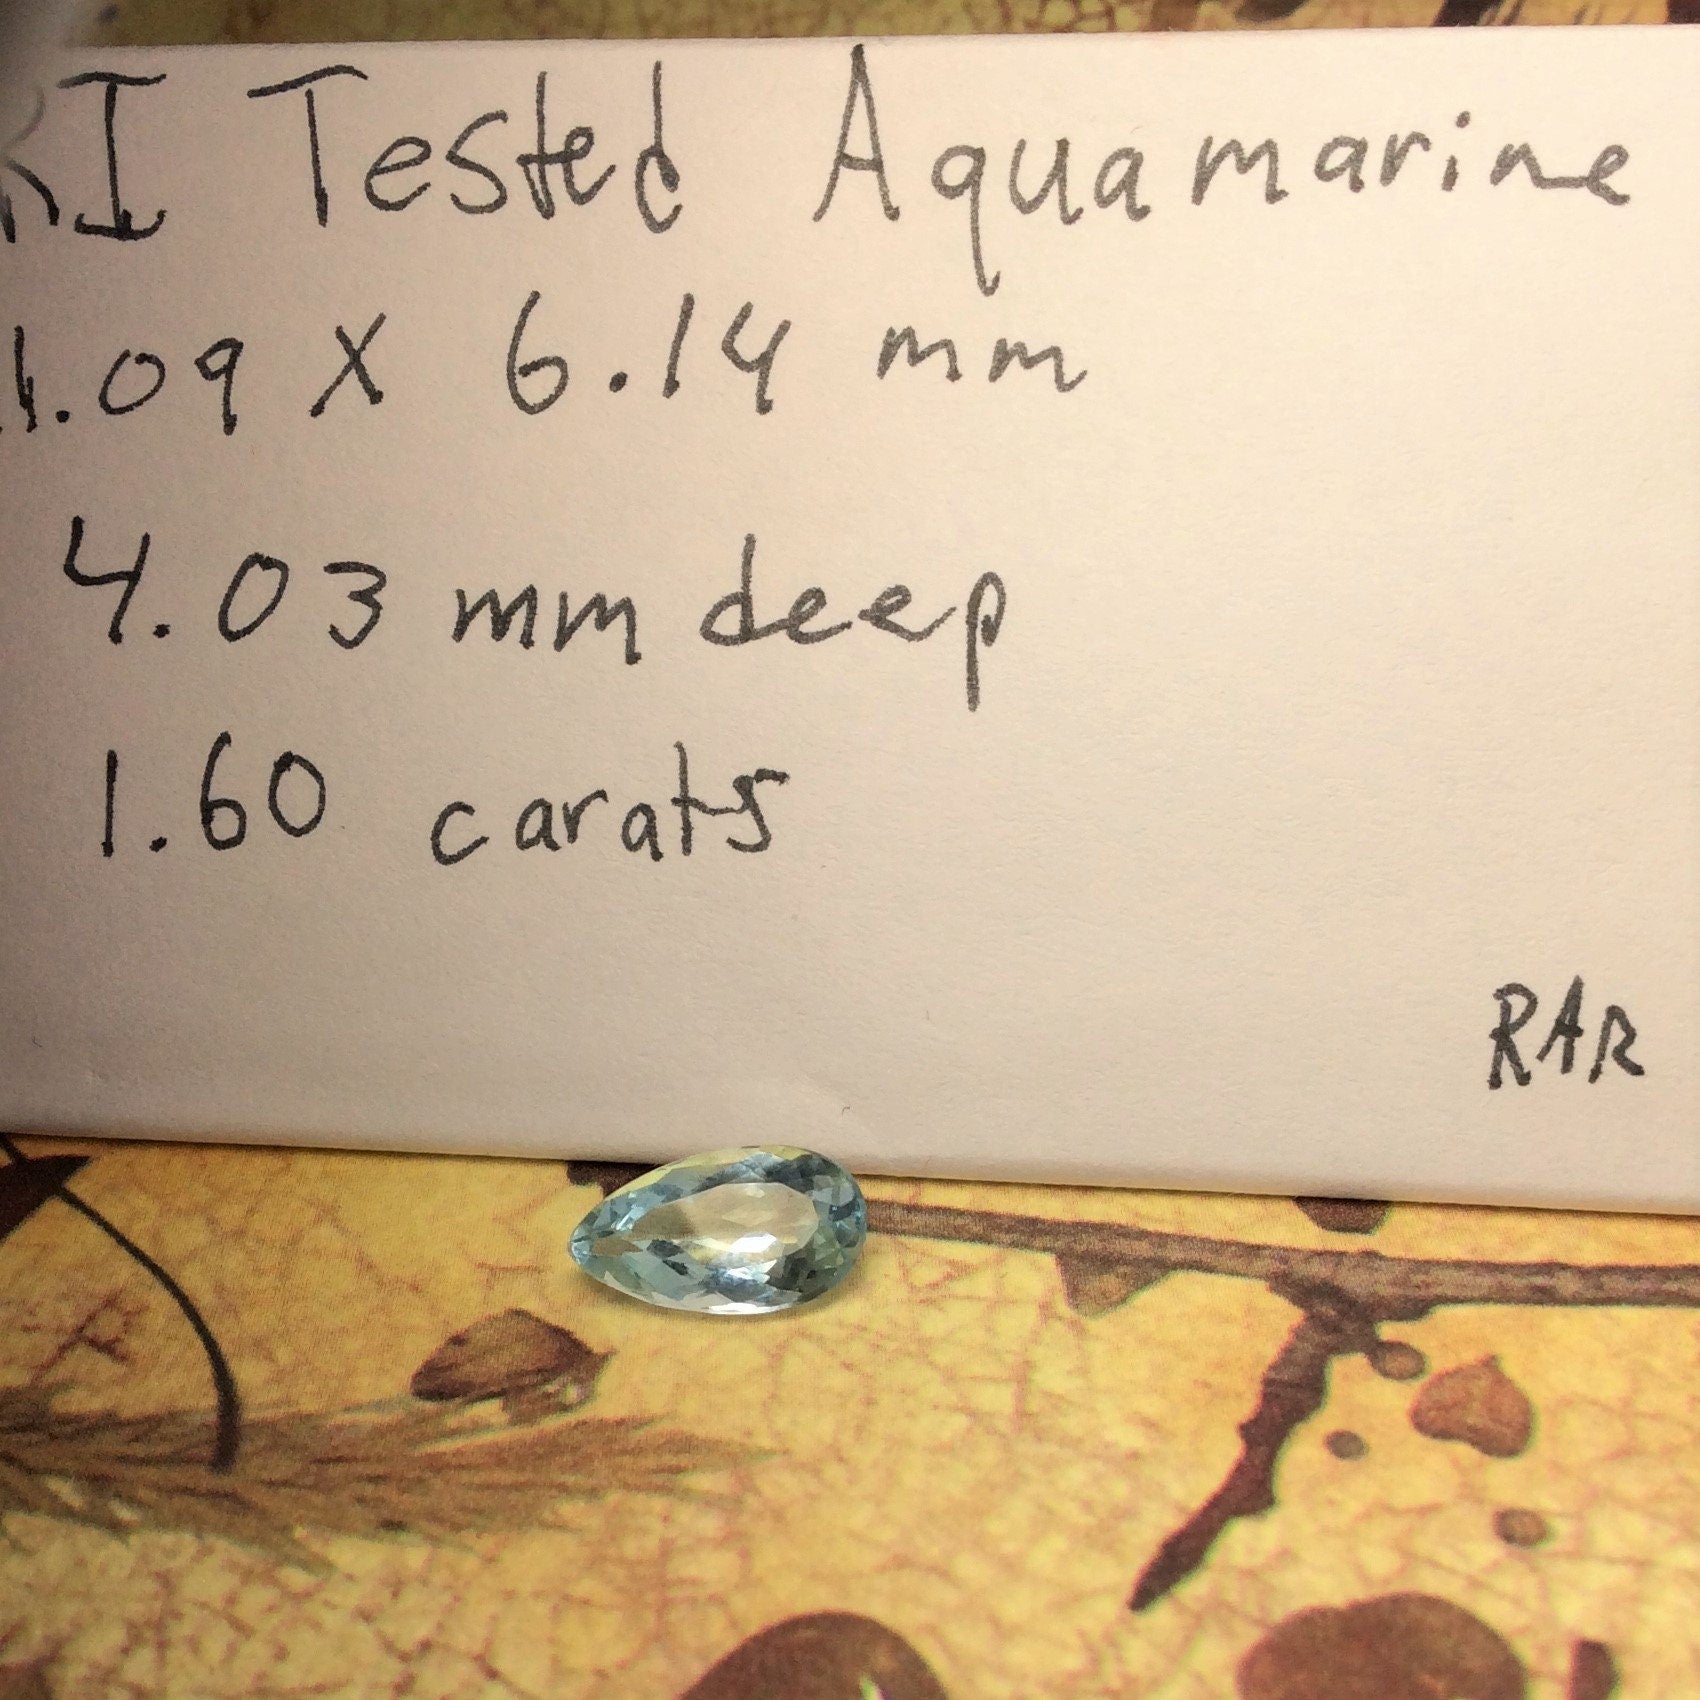 RI Tested Aquamarine
1.09 x 6.14 mm
4.03 mm deep
1.60 carats
RAR